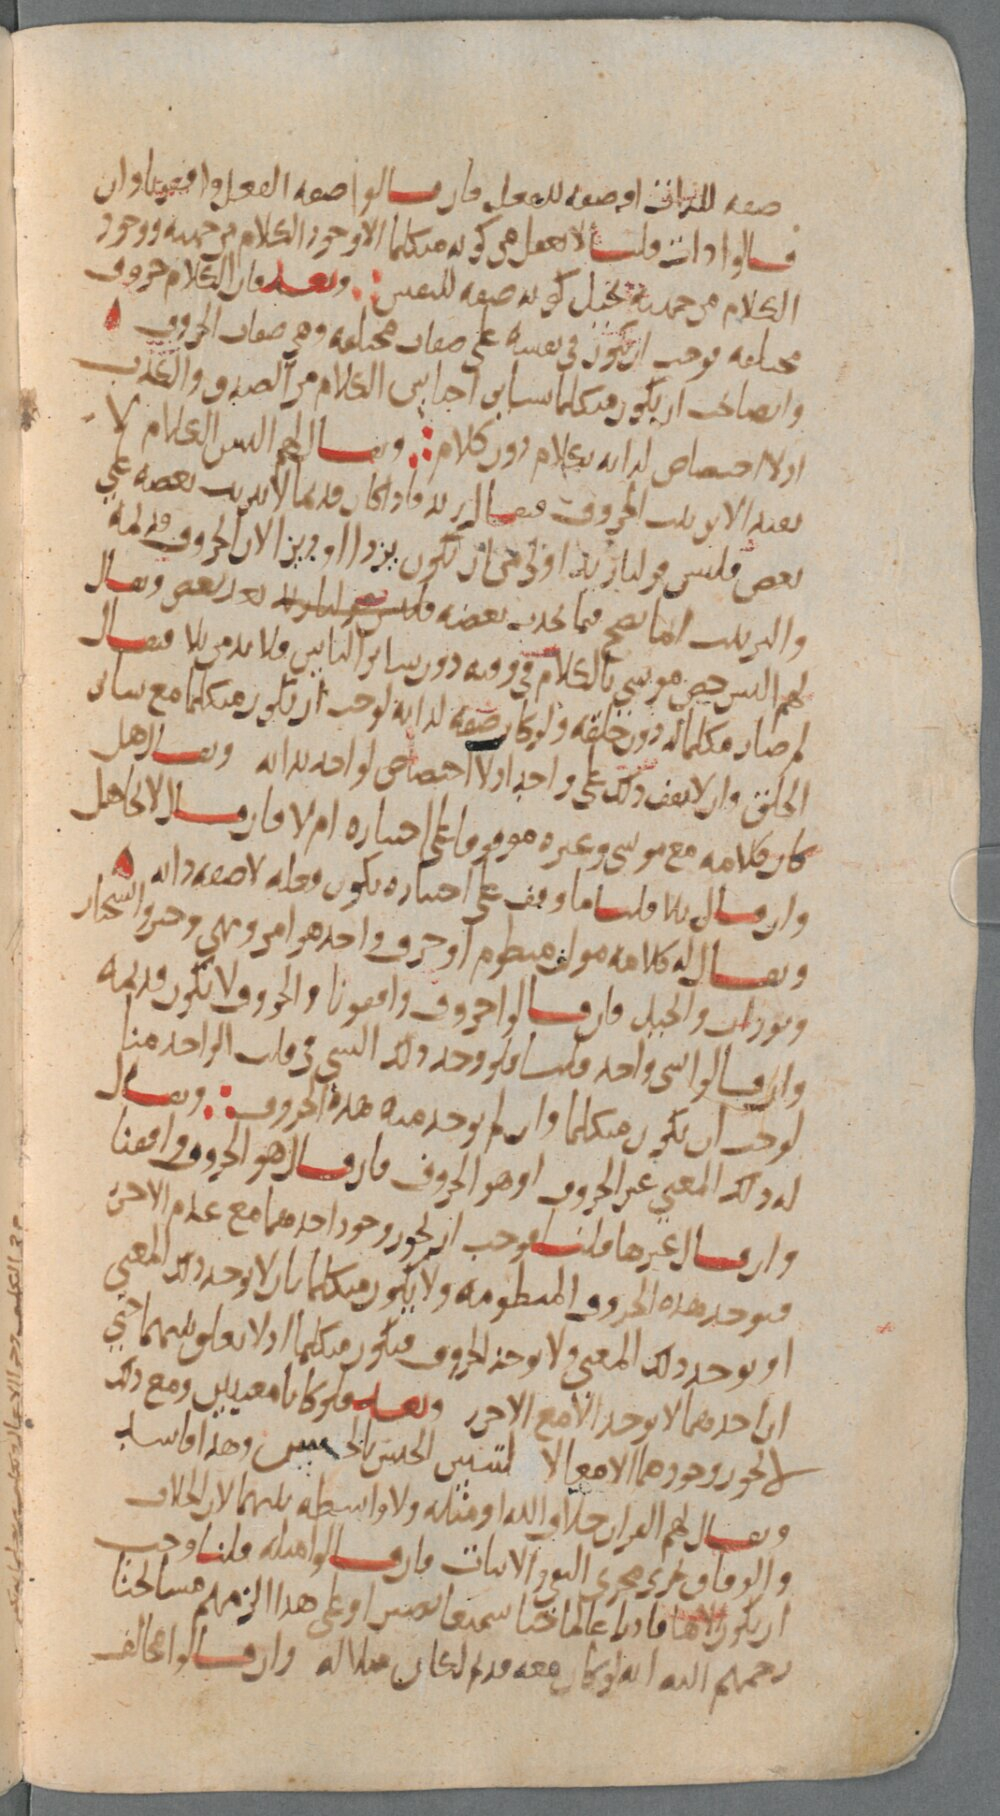 صفه للذات او صفه للفعل فان قالوا صفه الفعل وافقونا وان
قالوا ذات قلنا لا نعقل من كونه متكلما الا وجود الكلام من جهته ووجود
الكلام من جهته يحيل كونه صفه للنفس وبعد فان الكلام حروف
مختلفه فوجب ان يكون في نفسه على صفات مختلفه وهي صفات الحروف
وايضا يجب ان يكون متكلما بسائر اجناس الكلام من الصدق والكذب
اذ لا اختصاص لذاته بكلام دون كلام ويقال لهم اليس الكلام لا
يفيد الا بترتيب الحروف فيقال زيد فاذا كان قديما لا يترتب بعضه على
بعض فليس قولنا زيد اولى من ان يكون يزد او ديز لان الحروف قديمه
والترتيب انما يصح فيما يحدث بعضه بعد بعض ويقال
لهم اليس خص موسى بالكلام في وقته دون سائر الناس فلا بد من بلا فيقال
لم صار مكلما له دون خلقه ولو كان صفه لذاته لوجب ان يكون متكلما مع سائر
الخلق وان لا يقف ذلك على واحد اذ لا اختصاص لواحد بذاته ويقال هل
كان كلامه مع موسى وغيره موقوفا على اختياره ام لا فان قال لا تجاهل
وان قال بلا قلنا ما وقف على اختياره يكون فعله لا صفه ذاته
ويقال له كلامه مولف منظوم او حرف واحد هو امر ونهي وخبر واستخبار
وتوراه وانجيل فان قالوا حروف وافقونا والحروف لا تكون قديمه
وان قالوا شي واحد قلنا فلو وجد ذلك الشي في قلب الواحد منا
لوجب ان يكون متكلما وان لم يوجد منه هذه الحروف ويقال
له ذلك المعنى غير الحروف او هو الحروف فان قال هو الحروف وافقنا
وان قال غيرها قلنا فوجب ان يجوز وجود احدهما مع عدم الاخر
فتوجد هذه الحروف المنظومه ولا يكون متكلما بان لا يوجد ذلك المعنى
او يوجد ذلك المعنى ولا يوجد الحروف فيكون متكلما اذ لا تعلق بينهما حتى
ان احدهما لا يوجد الا مع الاخر وبعد فلو كانا معنيين ومع ذلك
لا يجوز وجودهما الا معا لالتبس الجنس بالجنس وهذا فاسد
ويقال لهم القران خلاف الله او مثله ولا واسطه بينهما لان الخلاف
والوفاق يجري مجرى النفي والاثبات فان قالوا مثله قلنا وجب
ان يكون الاها قادرا عالما حيا سميعا بصيرا وعلى هذا الزمهم مشايخنا
رحمهم الله انه لو كان معه قديم لكان مثلا له وان قالوا مخالف